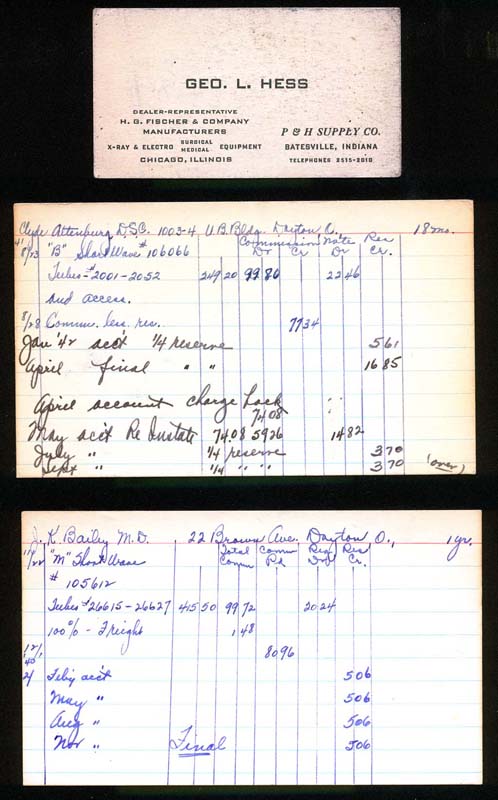 GEO. L. HESS
DEALER-REPRESENTATIVE
H. G. FISCHER & COMPANY
MANUFACTURERS
X-RAY & ELECTRO SURGICAL MEDICAL EQUIPMENT
CHICAGO, ILLINOIS
P & H SUPPLY CO.
BATESVILLE, INDIANA
TELEPHONES 2515-2010
Clyde Attenburg D.S.C. 1003-4 U.B. Bldg. Dayton O. 18 mo.
Commission Note Res
41 8/23 "B" Short Wave # 106066 Dr Cr Dr Cr.
Tubes-#2001-2052 249 20 99 80 22 46
and access.
8/28 Comm. less res. 77 34
Jan '42 acc't 1/4 reserve 5 61
April final " " 16 85
April account charge back
74 08
May acc't Re Instate 74 08 59 26 14 82
July " 1/4 reserve 3 70
Sept " 1/4 " " 3 70 (over)
J. K. Baily M.D. 22 Brown Ave. Dayton O., 1 yr.
Total Comm Res Res
11/22 "M" Short Wave Comm Pd. Cr.
# 105612
Tubes #26615-26627 415 50 99 72 20 24
100% - Freight 1 48
80 96
Feby acc't 5 06
May " 5 06
Aug " 5 06
Nov " Final 5 06